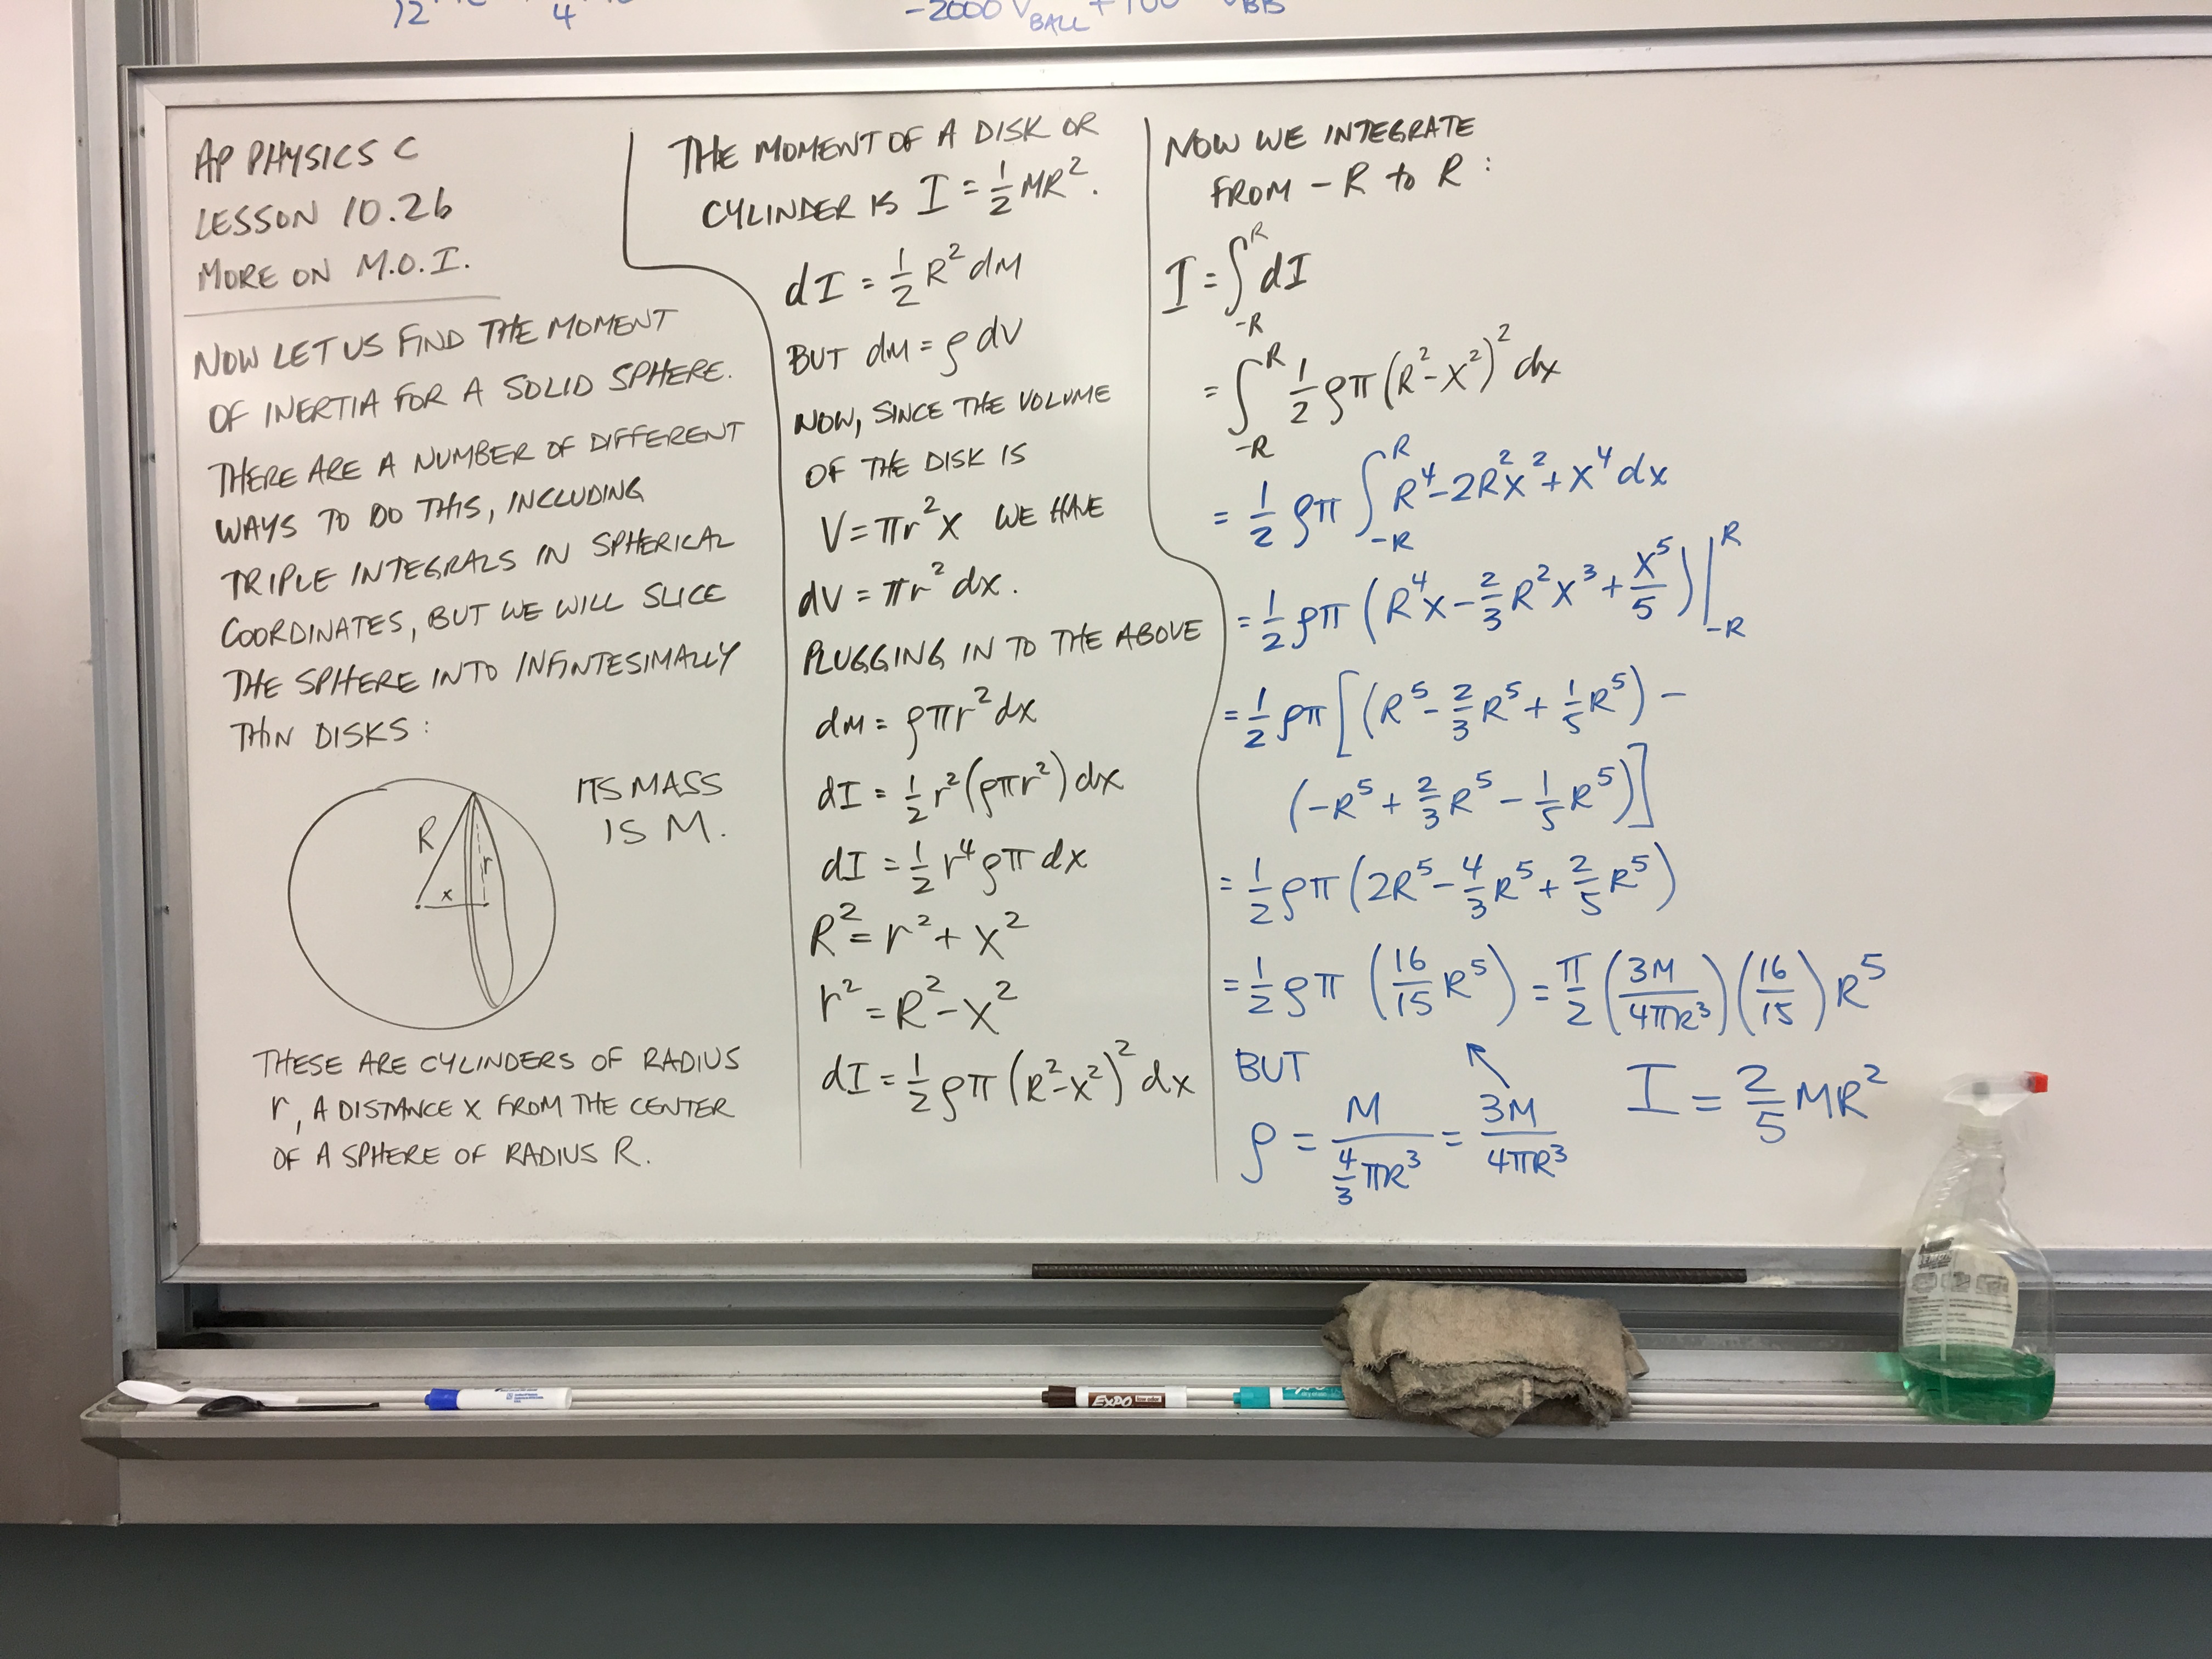 -2000 V BALL + 100
AP PHYSICS C
LESSON 10.2b
MORE ON M.O.I.
NOW LET US FIND THE MOMENT
OF INERTIA FOR A SOLID SPHERE.
THERE ARE A NUMBER OF DIFFERENT
WAYS TO DO THIS, INCLUDING
TRIPLE INTEGRALS IN SPHERICAL
COORDINATES, BUT WE WILL SLICE
THE SPHERE INTO INFINTESIMALLY
THIN DISKS:
ITS MASS
IS M.
R
r
x
THESE ARE CYLINDERS OF RADIUS
r, A DISTANCE X FROM THE CENTER
OF A SPHERE OF RADIUS R.
THE MOMENT OF A DISK OR
CYLINDER IS I = 1/2 MR².
dI = 1/2 R² dM
BUT dM = ρ dV
NOW, SINCE THE VOLUME
OF THE DISK IS
V = πr²x WE HAVE
dV = πr² dx.
PLUGGING IN TO THE ABOVE
dM = ρπr² dx
dI = 1/2 r² (ρπr²) dx
dI = 1/2 r⁴ ρπ dx
R² = r² + x²
r² = R² - x²
dI = 1/2 ρπ (R² - x²)² dx
NOW WE INTEGRATE
FROM -R to R:
I = ∫_{-R}^{R} dI
= ∫_{-R}^{R} 1/2 ρπ (R² - x²)² dx
= 1/2 ρπ ∫_{-R}^{R} R⁴ - 2R²x² + x⁴ dx
= 1/2 ρπ (R⁴x - 2/3 R²x³ + x⁵/5) |_{-R}^{R}
= 1/2 ρπ [(R⁵ - 2/3 R⁵ + 1/5 R⁵) -
(-R⁵ + 2/3 R⁵ - 1/5 R⁵)]
= 1/2 ρπ (2R⁵ - 4/3 R⁵ + 2/5 R⁵)
= 1/2 ρπ (16/15 R⁵) = π/2 (3M/4πR³)(16/15) R⁵
BUT
ρ = M / 4/3 πR³ = 3M/4πR³
I = 2/5 MR²
EXPO